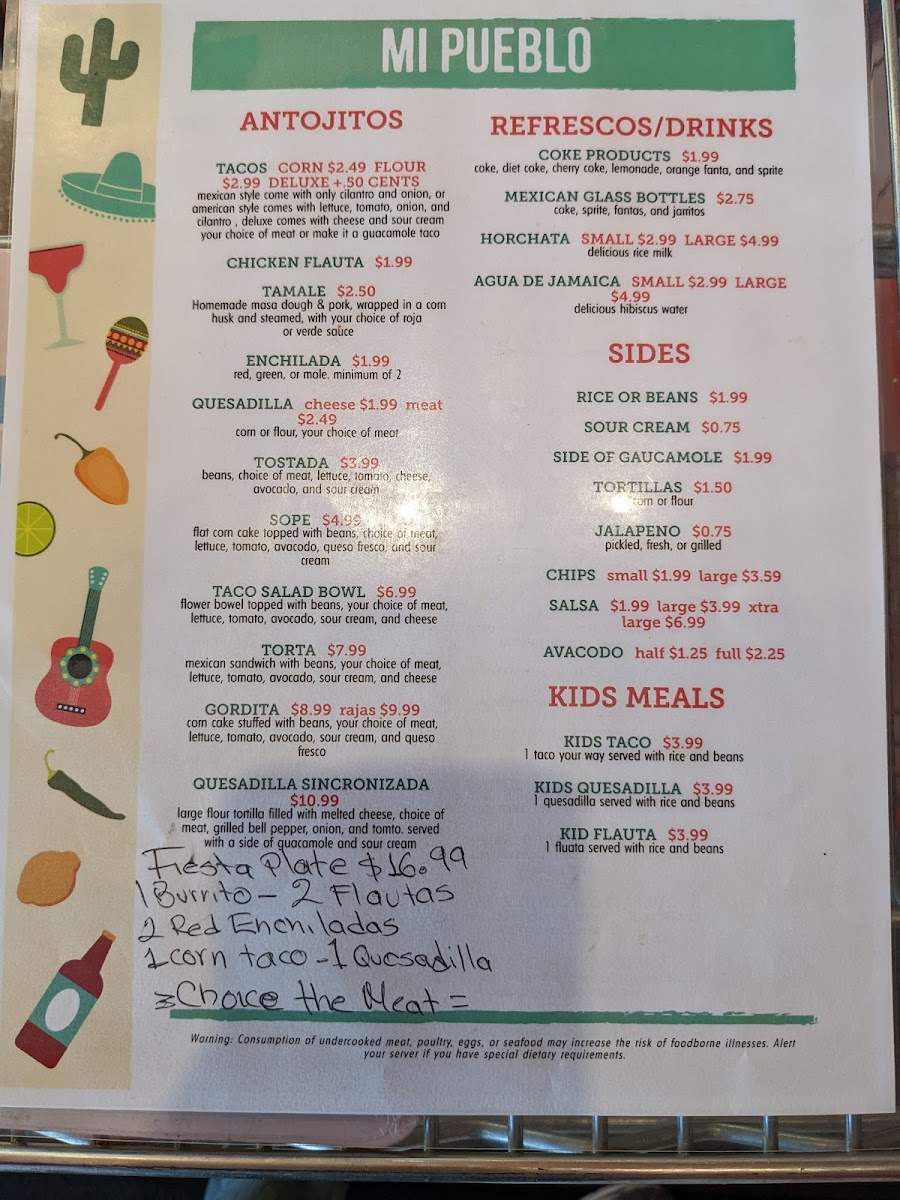 MI PUEBLO
ANTOJITOS
TACOS CORN $2.49 FLOUR
$2.99 DELUXE +.50 CENTS
mexican style come with only cilantro and onion, or
american style comes with lettuce, tomato, onion, and
cilantro , deluxe comes with cheese and sour cream
your choice of meat or make it a guacamole taco
CHICKEN FLAUTA $1.99
TAMALE $2.50
Homemade masa dough & pork, wrapped in a corn
husk and steamed, with your choice of roja
or verde sauce
ENCHILADA $1.99
red, green, or mole. minimum of 2
QUESADILLA cheese $1.99 meat
$2.49
corn or flour, your choice of meat
TOSTADA $3.99
beans, choice of meat, lettuce, tomato, cheese,
avocado, and sour cream
SOPE $4.99
flat corn cake topped with beans, choice of meat,
lettuce, tomato, avacodo, queso fresco, and sour
cream
TACO SALAD BOWL $6.99
flower bowel topped with beans, your choice of meat,
lettuce, tomato, avocado, sour cream, and cheese
TORTA $7.99
mexican sandwich with beans, your choice of meat,
lettuce, tomato, avocado, sour cream, and cheese
GORDITA $8.99 rajas $9.99
corn cake stuffed with beans, your choice of meat,
lettuce, tomato, avocado, sour cream, and queso
fresco
QUESADILLA SINCRONIZADA
$10.99
large flour tortilla filled with melted cheese, choice of
meat, grilled bell pepper, onion, and tomto. served
with a side of guacamole and sour cream
Fiesta Plate $16.99
1 Burrito - 2 Flautas
2 Red Enchiladas
1 corn taco - 1 Quesadilla
Choice the Meat =
REFRESCOS/DRINKS
COKE PRODUCTS $1.99
coke, diet coke, cherry coke, lemonade, orange fanta, and sprite
MEXICAN GLASS BOTTLES $2.75
coke, sprite, fantas, and jarritos
HORCHATA SMALL $2.99 LARGE $4.99
delicious rice milk
AGUA DE JAMAICA SMALL $2.99 LARGE
$4.99
delicious hibiscus water
SIDES
RICE OR BEANS $1.99
SOUR CREAM $0.75
SIDE OF GAUCAMOLE $1.99
TORTILLAS $1.50
corn or flour
JALAPENO $0.75
pickled, fresh, or grilled
CHIPS small $1.99 large $3.59
SALSA $1.99 large $3.99 xtra
large $6.99
AVACODO half $1.25 full $2.25
KIDS MEALS
KIDS TACO $3.99
1 taco your way served with rice and beans
KIDS QUESADILLA $3.99
1 quesadilla served with rice and beans
KID FLAUTA $3.99
1 fluata served with rice and beans
Warning: Consumption of undercooked meat, poultry, eggs, or seafood may increase the risk of foodborne illnesses. Alert
your server if you have special dietary requirements.